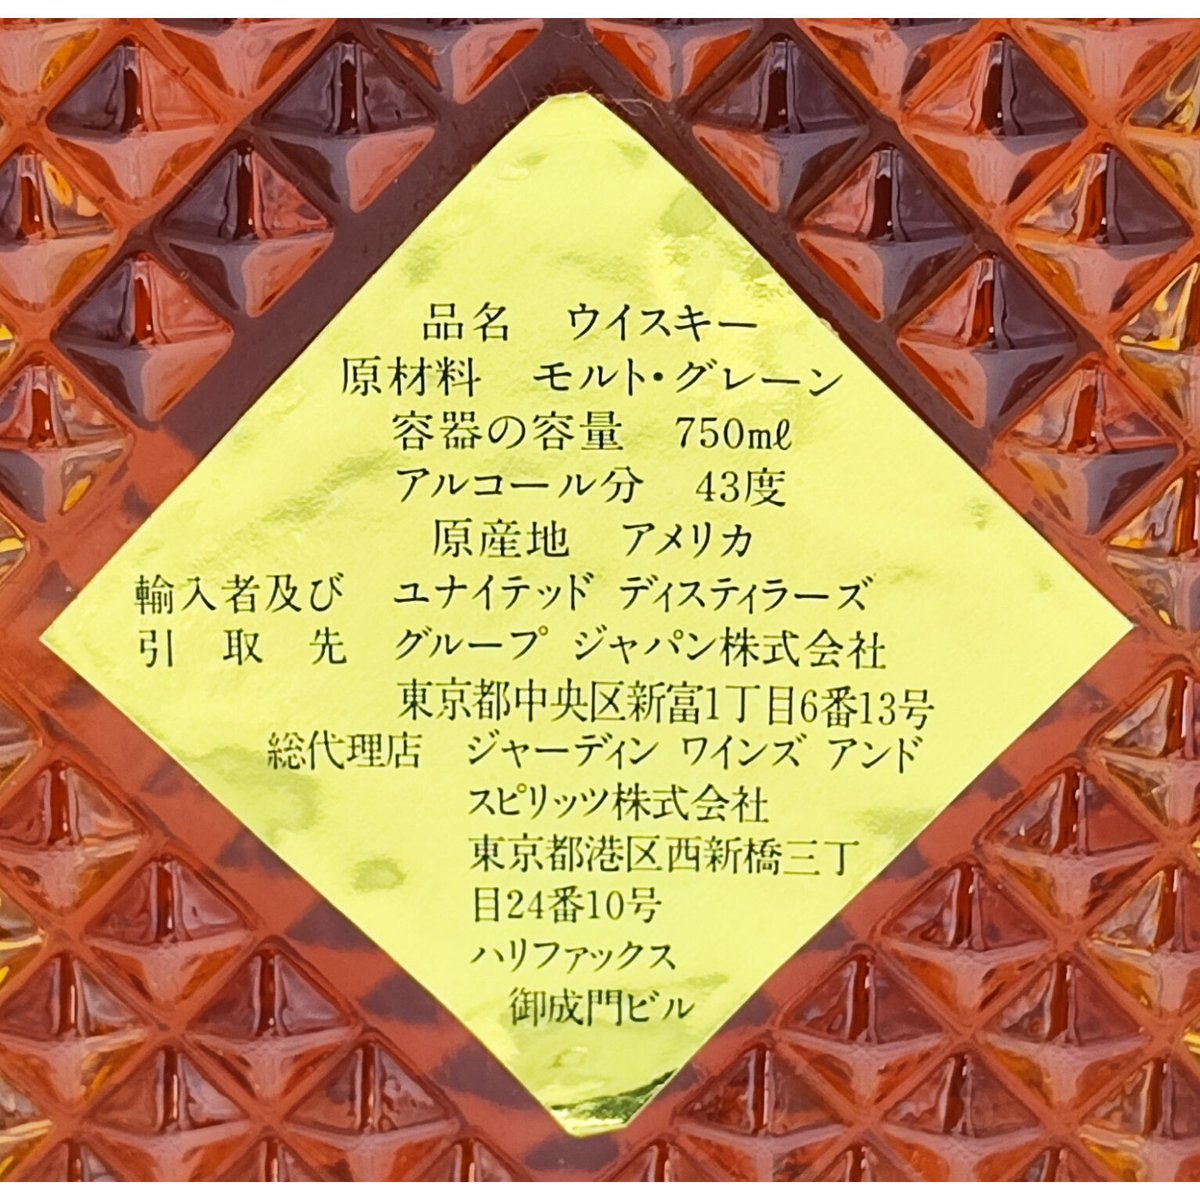 品名　ウイスキー
原材料　モルト・グレーン
容器の容量　750mℓ
アルコール分　43度
原産地　アメリカ
輸入者及び　ユナイテッド ディスティラーズ
引　取　先　グループ ジャパン株式会社
東京都中央区新富1丁目6番13号
総代理店　ジャーディン ワインズ アンド
スピリッツ株式会社
東京都港区西新橋三丁
目24番10号
ハリファックス
御成門ビル